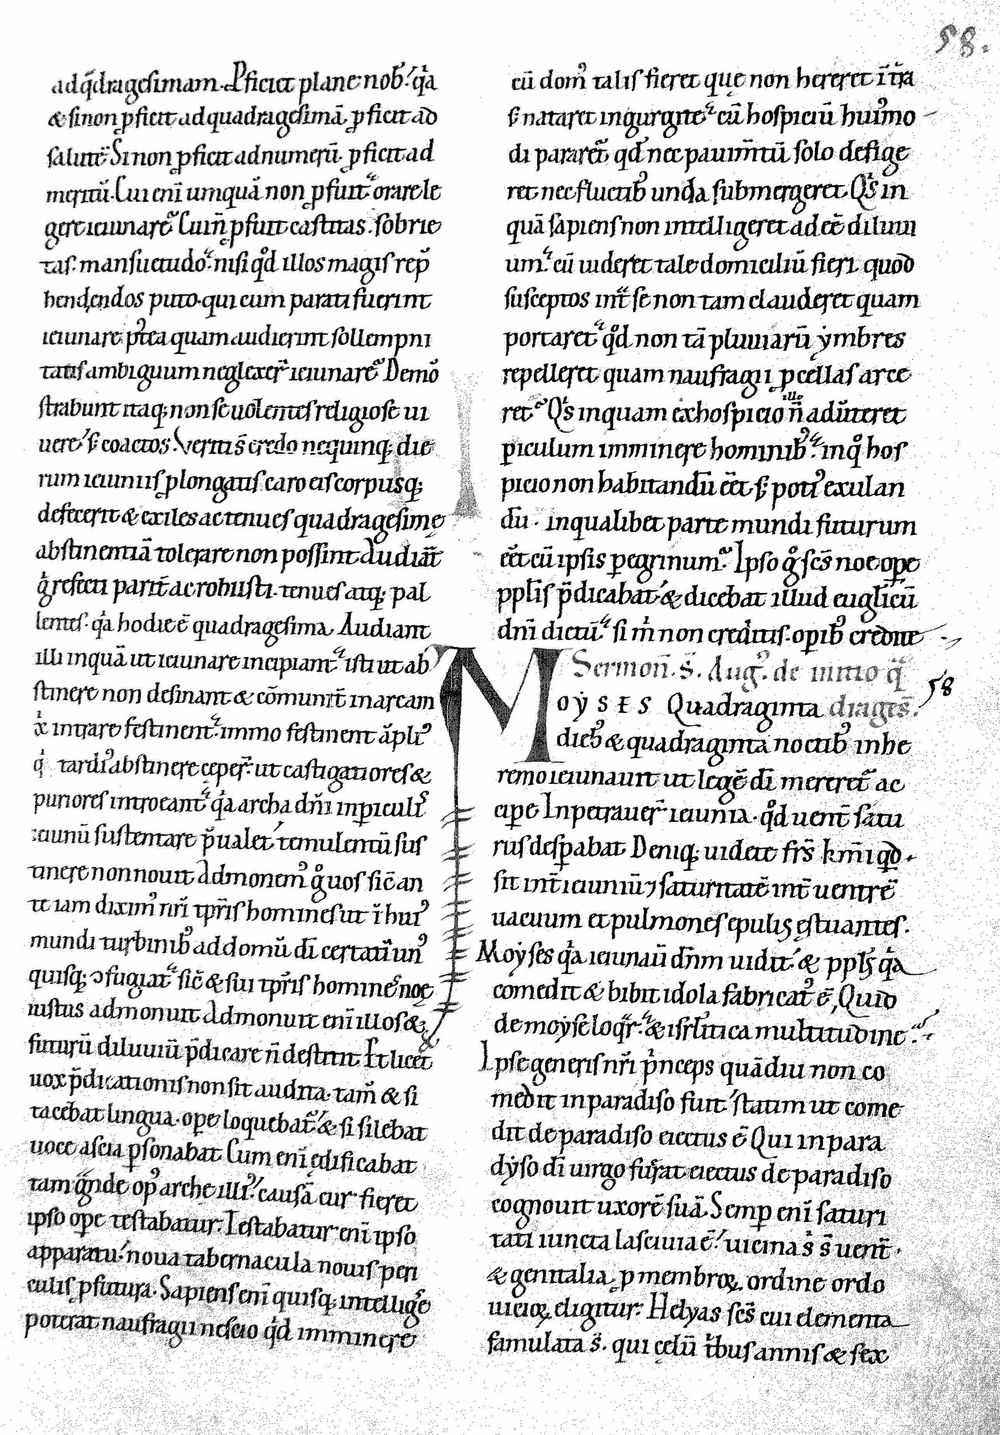 58.
ad q̄dragesimam. Pficiet plane nob᷒ qͣa
& si non ꝓficit ad quadragesimā ꝓficit ad
salutē. Si non ꝓficit ad numerū. ꝓficit ad
meritū. Cui eni umquā non ꝓfuit orare le
gere ieiunare. Cui ñ ꝓfuit castitas. sobrie
tas. mansuetudo. nisi qd̊ illos magis rep̄
hendendos puto. qui cum parati fuerint
ieiunare. p᷒tea quam audierint sollempni
tatis ambiguum neglexer̄ ieiunare. Demō
strabunt itaq; non se uolentes religiose ui
uere. s; coactos. Verti s̄ credo nequinq; die
rum ieiuniis ꝓlongatis caro eis corpusq;
defecerit & exiles ac tenues quadragesime
abstinentiā tolerare non possint. Audiāt
g̊ refecti parit̄ ac robusti. tenues atq; pal
lentes. qͣa hodie ē quadragesima. Audiant
illi inquā ut ieiunare incipiant. isti ut ab
stinere non desinant & cōmunit̄ in arcam
x̊ intrare festinent. immo festinent āpli᷒
q̊ tardi᷒ abstinere ceper̄. ut castigatiores &
puriores introeant. qͣa archa dn̄i in piculis
ieiunū sustentare p̄ualet. temulentū sus
tinere non nouit. Admonem᷒ g̊ uos sic̄ an
te iam dixim᷒ nr̄i tp̄ris homines ut ī hui᷒
mundi turbinib᷒ ad domū dī certati᷒ un᷒
quisq; ↄfugiat. sic̄ & sui tp̄ris hominē noe
iustus admonuit. Admonuit eni illos &
futurū diluuiū p̄dicare ñ destitit. Et licet
uox p̄dicationis non sit audita. tam̄ & si
tacebat lingua. ope loquebat᷒. & si silebat
uoce ascia ꝑsonabat. Cum eni edificabat
tam gͣnde op᷒ arche illi᷒. causā cur fieret
ipso ope testabatur. Testabatur eni ipso
apparatu. noua tabernacula nouis peri
culis ꝓfutura. Sapiens eni quisq; intellige
poterat naufragii nescio qd̊ imminere
cū dom᷒ talis fieret que non hereret ī tͬra
s; nataret in gurgite. cū hospiciū hui᷒mo
di pararet᷒. qd̊ nec pauimtū solo defige
ret nec fluctib᷒ unda submergeret. Qͥs in
quā sapiens non intelligeret ad eē diluui
um. cū uideret tale domiciliū fieri. quod
susceptos int̄ se non tam clauderet quam
portaret. qd̊ non tā pluuiarū ẏmbres
repelleret quam naufragii ꝓcellas arce
ret. Qͥs inquam ex hospicio illo ñ aduteret
piculum imminere hominib᷒. inq᷒ hos
picio non habitandū eēt s; poti᷒ exulan
dū. in qualibet parte mundi futurum
eēt cū ipsis pegrinum. Ipso g̊ scs̄ noe ope
pplis p̄dicabat. & dicebat illud euglicū
dn̄i dictū. si m̄ non creditis. opib᷒ credite
Sermon̄. s. Aug᷒. de initio q̄
dragesi.
58
MOẎSES Quadraginta
dieb᷒ & quadraginta noctib᷒ in he
remo ieiunauit ut legē dī mereret᷒ ac
cipe. Inpetrauer̄ ieiunia. qd̊ uent̄ satu
rus despabat. Deniq; uidete frs̄ kmī qd̊
sit int̄ ieiuniū ⁊ saturitatē int̄ uentrē
uacuum et pulmones epulis estuantes.
Moẏses qͣa ieiunau dn̄m uidit. & ppls qͣa
comedit & bibit idola fabricat᷒ ē. Quid
de moẏse loq̄r. & isrlitica multitudine.
Ipse generis nr̄i pͥnceps quādiu non co
medit in paradiso fuit. statim ut come
dit de paradiso eiectus ē. Qui in para
dẏso dī uirgo fuͤrat eiectus de paradiso
cognouit uxorē suā. Semp eni saturi
tati iuncta lasciuia ē. uicina s̄ s̄ uent̄.
& genitalia. ꝓ membroꝝ ordine ordo
uicioꝝ digitur. Helyas scs̄ cui elementa
famulata s̄. qui celū tͥbus annis & sex